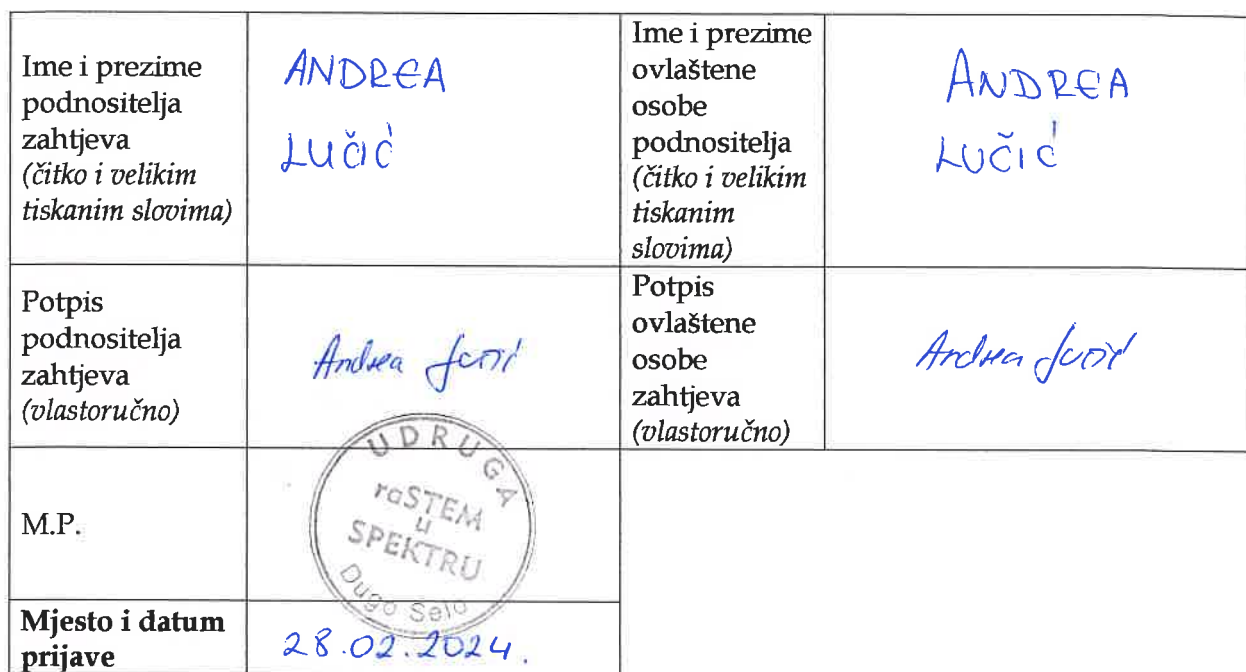 Ime i prezime
podnositelja
zahtjeva
(čitko i velikim
tiskanim slovima)
ANDREA
LUČIĆ
Ime i prezime
ovlaštene
osobe
podnositelja
(čitko i velikim
tiskanim
slovima)
ANDREA
LUČIĆ
Potpis
podnositelja
zahtjeva
(vlastoručno)
Andrea Lučić
Potpis
ovlaštene
osobe
zahtjeva
(vlastoručno)
Andrea Lučić
M.P.
UDRUGA
raSTEM
u
SPEKTRU
Dugo Selo
Mjesto i datum
prijave
28.02.2024.